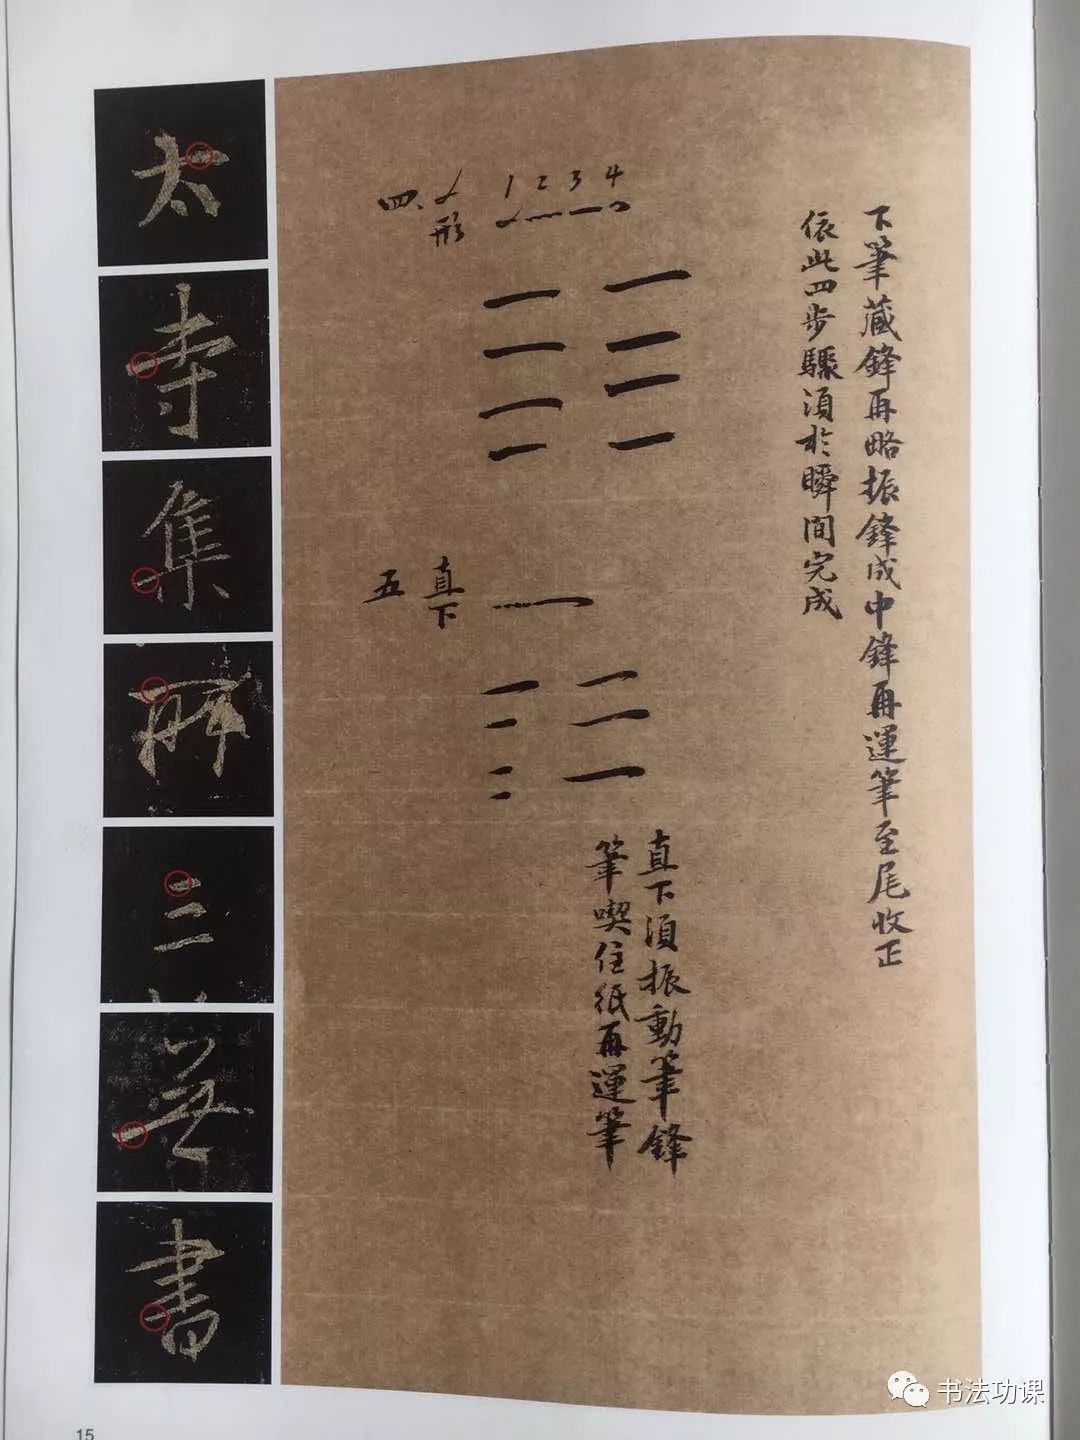 下筆藏鋒再略振鋒成中鋒再運筆至尾收正
依此四步驟須於瞬間完成
1 2 3 4
形
四、
直下
五
直下須振動筆鋒
筆喫住紙再運筆
太
寺
集
解
三
書
15
书法功课